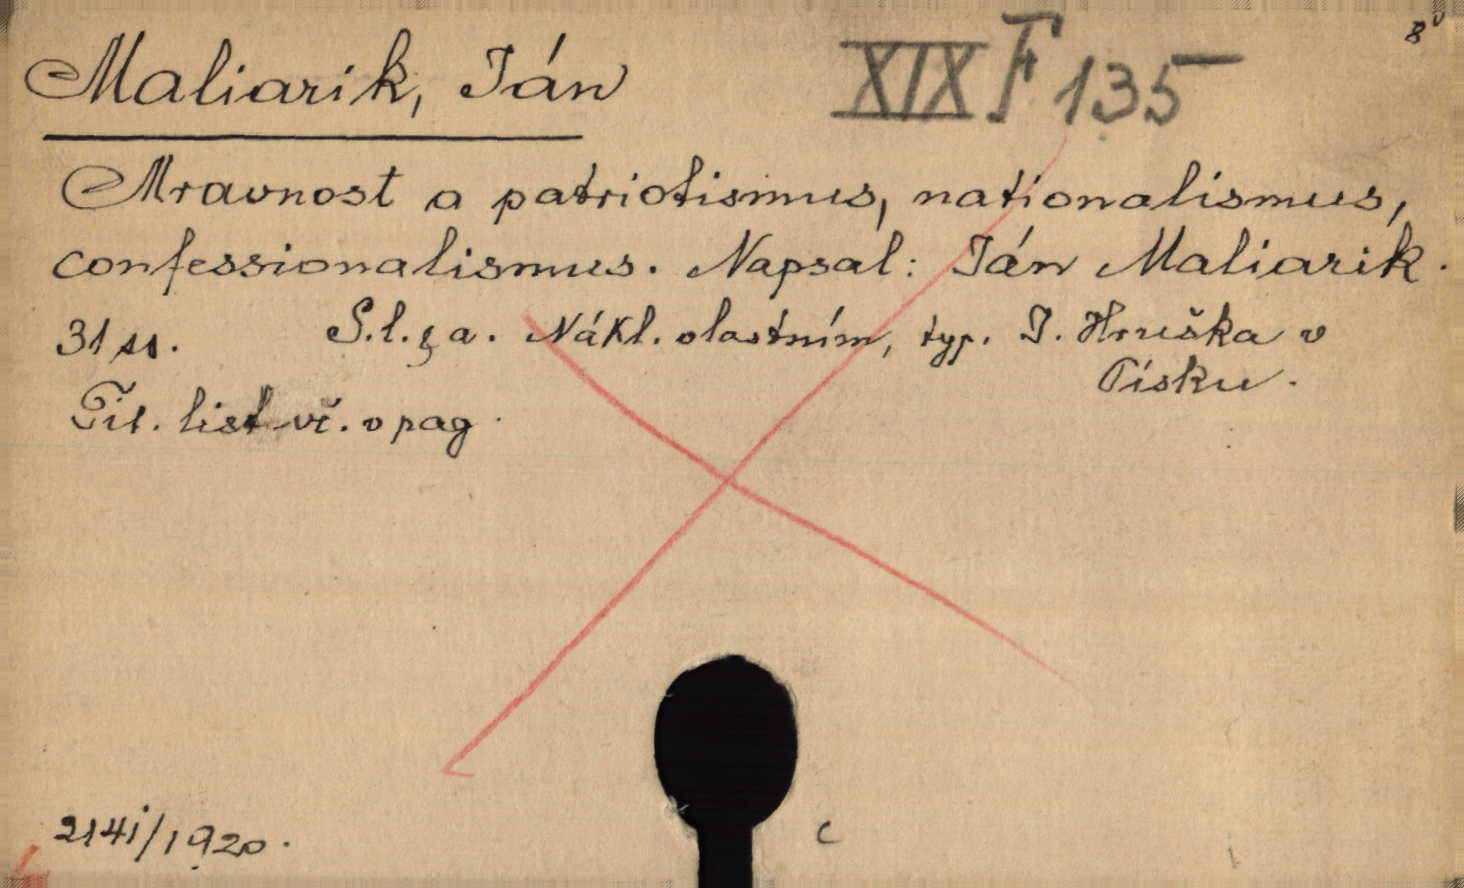 8°
Maliarik, Ján XIX F 135
Mravnost a patriotismus, nationalismus,
confessionalismus. Napsal: Ján Maliarik.
31 ss. S.l. & a. Nákl. vlastním, typ. J. Hruška v
Písku.
Tit. list vč. v pag.
2141/1920.
c